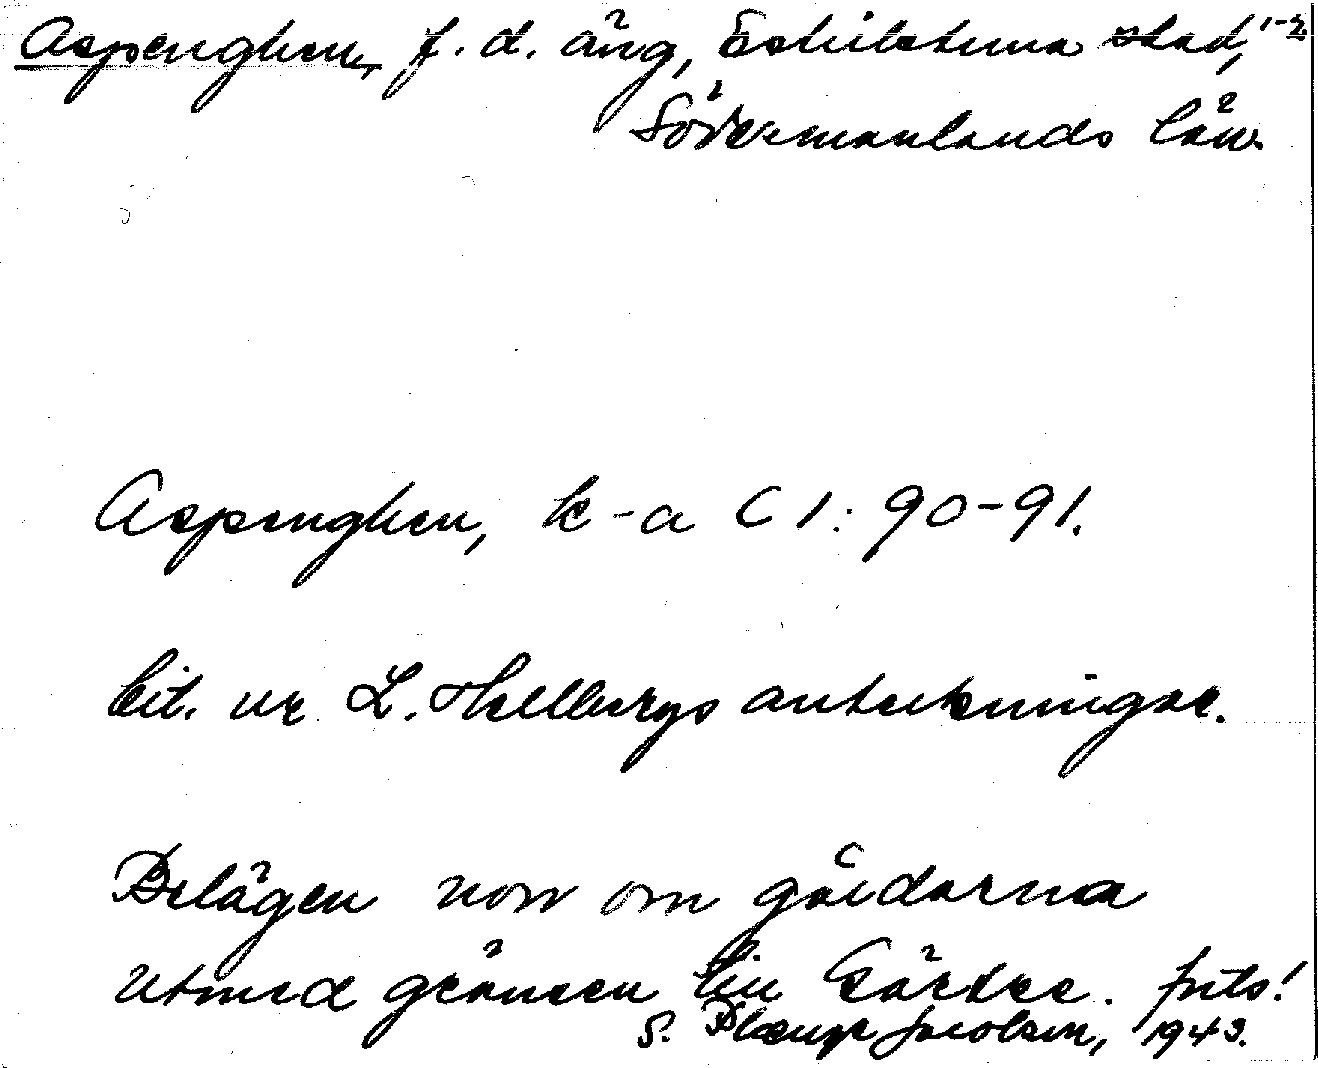 Aspenghen, f. d. äng, Eskilstuna stad, 1-2
Södermanlands län.
Aspenghen, k-a C 1: 90-91.
Cit. ur L. Hellbergs anteckningar.
Belägen norr om gårdarna
utmed gränsen till
S. Jacobson, 1943.